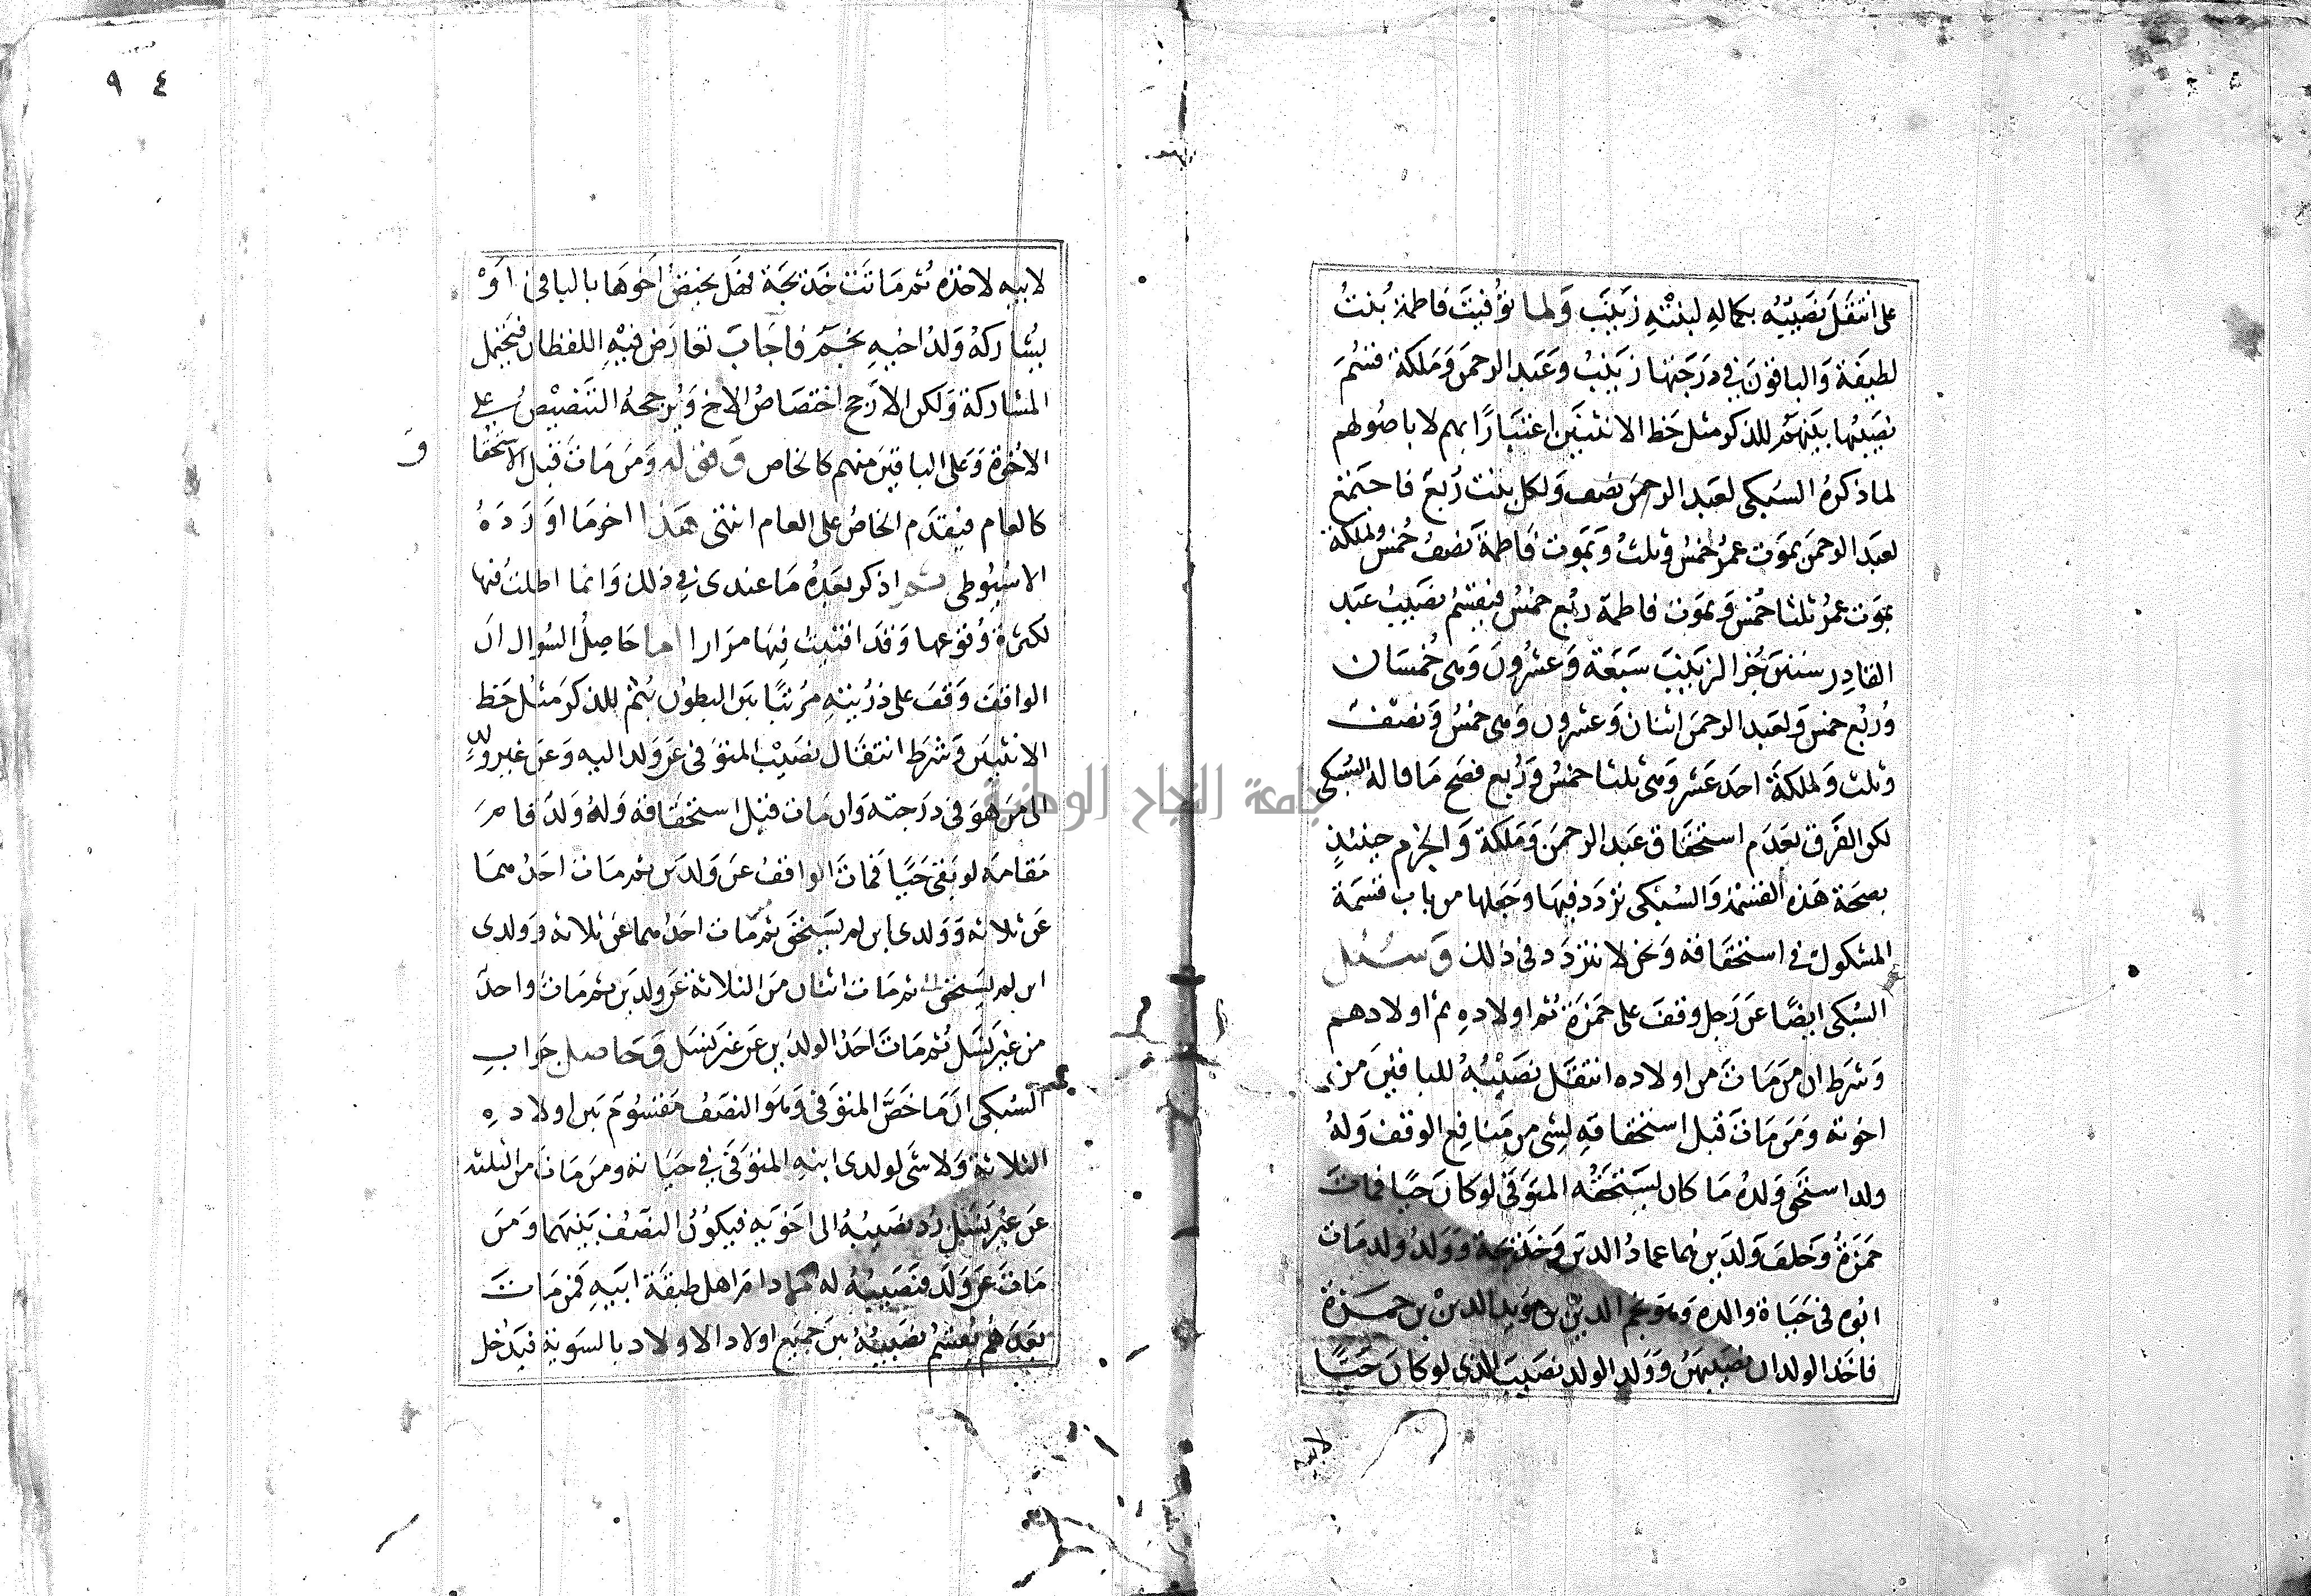 على انتقل نصيبه بكماله لبنته زينب ولما توفيت فاطمة بنت
لطيفة والباقون في درجتها زينب وعبد الرحمن وملكة قسم
نصيبها بينهم للذكر مثل حظ الانثيين اعتبارا بهم لا باصولهم
لما ذكره السبكى لعبد الرحمن نصف ولكل بنت ربع فاجتمع
لعبد الرحمن بموت عمر خمس وثلث وبموت فاطمة نصف خمس ولملكة
بموت عمر ثلثا خمس وبموت فاطمة ربع خمس فيقسم نصيب عبد
القادر ستين جزا لزينب سبعة وعشرون وهى خمسان
وربع خمس ولعبد الرحمن اثنان وعشرون وهى خمس ونصف
وثلث ولملكة احد عشر وهى ثلثا خمس وربع فصح ما قاله السبكى
لكن الفرق بعدم استحقاق عبد الرحمن وملكة والجزم حينئذ
بصحة هذه القسمة والسبكى تردد فيها وجعلها من باب قسمة
المشكوك في استحقاقه ونحن لا نتردد في ذلك وسئل
السبكى ايضا عن رجل وقف على حمزة ثم اولاده ثم اولادهم
وشرط ان من مات من اولاده انتقل نصيبه للباقين من
اخوته ومن مات قبل استحقاقه لشى من منافع الوقف وله
ولد استحق ولده ما كان يستحقه المتوفى لو كان حيا فمات
حمزة وخلف ولدين هما عماد الدين وخديجة وولد ولد مات
ابوه في حياة والده وهو نجم الدين بن مويد الدين بن حمزة
فاخذ الولدان نصيبهن وولد الولد نصيب الذى لو كان حيا
لابيه
٩٤
لابيه لاخذه ثم ماتت خديجة فهل يختص اخوها بالباقى او
يشاركه ولد اخيه نجم فاجاب تعارض فيه اللفظان فيحتمل
المشاركة ولكن الارجح اختصاص الاخ ويرجحه التنصيص على
الاخوة وعلى الباقين منهم كالخاص وقوله ومن مات قبل الاستحقا
و
كالعام فيقدم الخاص على العام انتهى هذا اخر ما اورده
الاسيوطى ثم اذكر بعده ما عندى في ذلك وانما اطلت فيها
لكثرة وقوعها وقد افتيت فيها مرارا اما حاصل السوال ان
الواقف وقف على ذريته مرتبا بين البطون بثم للذكر مثل حظ
الانثيين وشرط انتقال نصيب المتوفى عن ولد اليه وعن غير ولد
الى من هو في درجته وان مات قبل استحقاقه وله ولد قام
مقامه لو بقى حيا فمات الواقف عن ولدين ثم مات احدهما
عن ثلاثة وولدى ابن لم يستحق ثم مات احدهما عن ثلاثة وولدى
ابن لم يستحق ثم مات اثنان من الثلاثة عن ولدين ثم مات واحد
من غير نسل ثم مات احد الولدين عن غير نسل وحاصل جواب
السبكى ان ما خص المتوفى وهو النصف مقسوم بين اولاده
الثلاثة ولا شى لولدى ابنه المتوفى في حياته ومن مات من الثلثه
عن غير نسل رد نصيبه الى اخويه فيكون النصف بينهما ومن
مات عن ولد فنصيبه له ما دام اهل طبقة ابيه فمن مات
بعدهم يقسم نصيبه بين جميع اولاد الاولاد بالسوية فيدخل
جامعة النجاح الوطنية